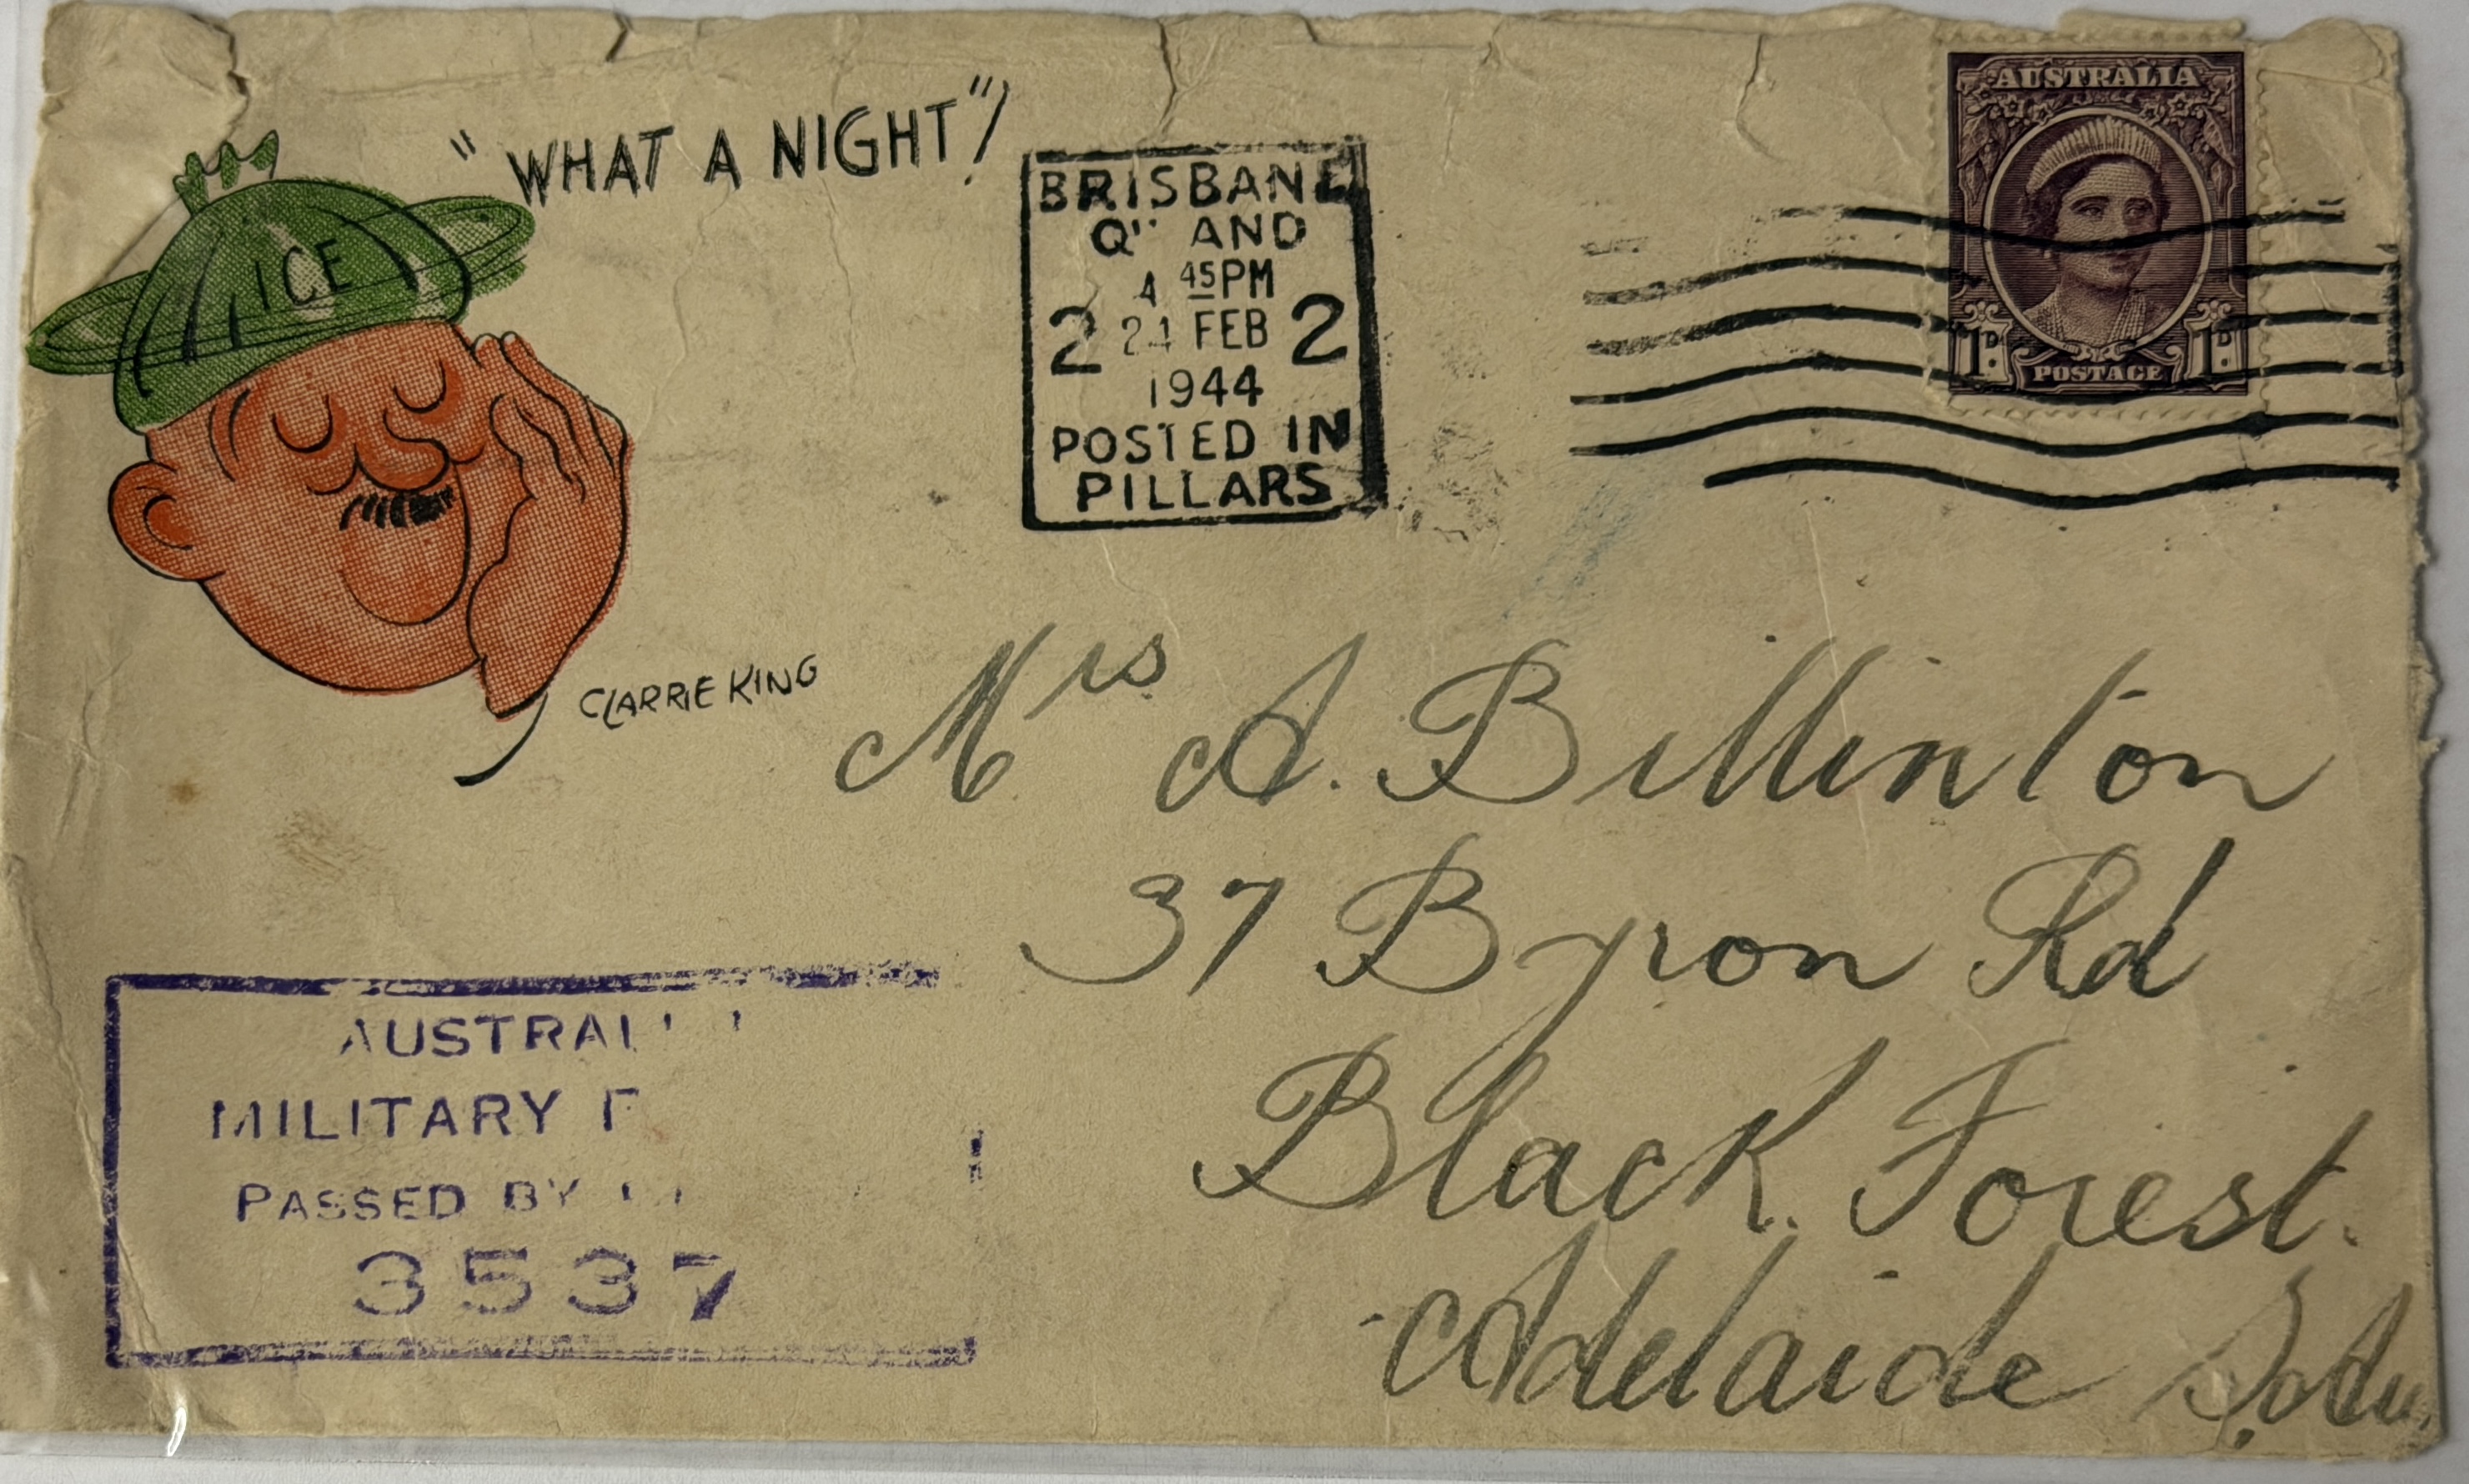 "WHAT A NIGHT"!
ICE
CLARRIE KING
BRISBANE
Q'' AND
4 45PM
2 24 FEB 2
1944
POSTED IN
PILLARS
AUSTRALIA
1D. 1D.
POSTAGE
Mrs A. Billinton
37 Byron Rd
Black Forest.
Adelaide
AUSTRAL
MILITARY F
PASSED BY
3537